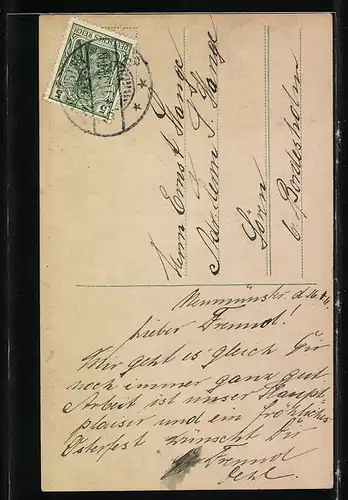 DEUTSCHES REICH
5
Herrn Ernst Lange
Adr. Herrn J. Lange
b. Bordesholm
Neumünster. d. 16.4.
Lieber Freund!
Mir geht es gleich Dir
noch immer ganz gut
Arbeit ist unser Haupt-
plaisier und ein fröhliches
Osterfest wünscht Dir
Freund